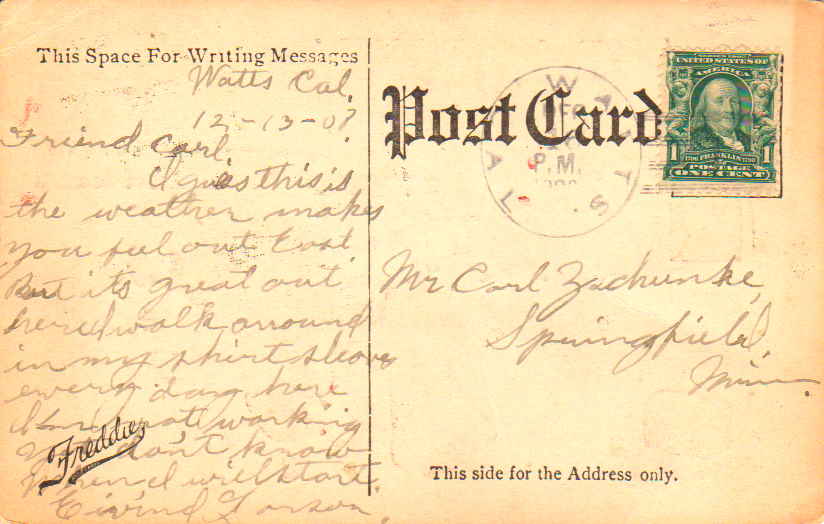 This Space For Writing Messages
Watts Cal.
12-13-07
Friend Carl.
I guess this is
the weather makes
you feel out East.
But its great out
here I walk arround
in my shirt sleeves
every day here
I am not working
don't know
when I will start.
Eivind Larson
Freddie
Post Card
WATTS
CAL
P.M.
UNITED STATES OF
AMERICA
1706 FRANKLIN 1790
1 POSTAGE 1
ONE CENT
Mr Carl
Springfield,
Minn.
This side for the Address only.